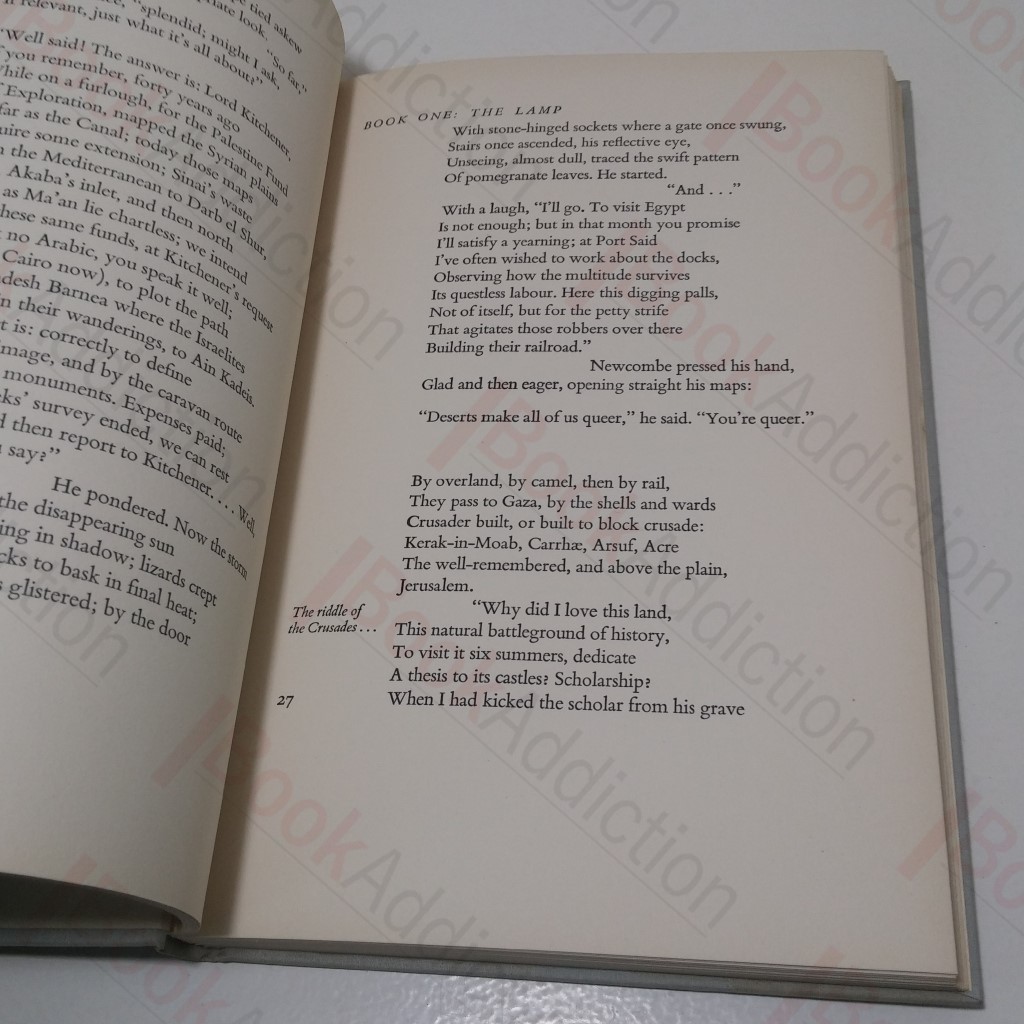 tied askew
look. "So far,"
"splendid; might I ask,
relevant, just what it's all about?"
"Well said! The answer is: Lord Kitchener,
you remember, forty years ago
While on a furlough, for the Palestine Fund
Exploration, mapped the Syrian plains
far as the Canal; today those maps
some extension; Sinai's waste
the Mediterranean to Darb el Shur,
Akaba's inlet, and then north
as Ma'an lie chartless; we intend
these same funds, at Kitchener's request
no Arabic, you speak it well;
Cairo now), to plot the path
Barnea where the Israelites
in their wanderings, to Ain Kadeis.
is: correctly to define
and by the caravan route
monuments. Expenses paid;
survey ended, we can rest
then report to Kitchener. . . . Well,
say?"
He pondered. Now the storm
the disappearing sun
in shadow; lizards crept
to bask in final heat;
glistered; by the door
BOOK ONE: THE LAMP
With stone-hinged sockets where a gate once swung,
Stairs once ascended, his reflective eye,
Unseeing, almost dull, traced the swift pattern
Of pomegranate leaves. He started.
"And . . ."
With a laugh, "I'll go. To visit Egypt
Is not enough; but in that month you promise
I'll satisfy a yearning; at Port Said
I've often wished to work about the docks,
Observing how the multitude survives
Its questless labour. Here this digging palls,
Not of itself, but for the petty strife
That agitates those robbers over there
Building their railroad."
Newcombe pressed his hand,
Glad and then eager, opening straight his maps:
"Deserts make all of us queer," he said. "You're queer."
By overland, by camel, then by rail,
They pass to Gaza, by the shells and wards
Crusader built, or built to block crusade:
Kerak-in-Moab, Carrhæ, Arsuf, Acre
The well-remembered, and above the plain,
Jerusalem.
The riddle of
the Crusades . . .
"Why did I love this land,
This natural battleground of history,
To visit it six summers, dedicate
A thesis to its castles? Scholarship?
When I had kicked the scholar from his grave
27
BookAddiction